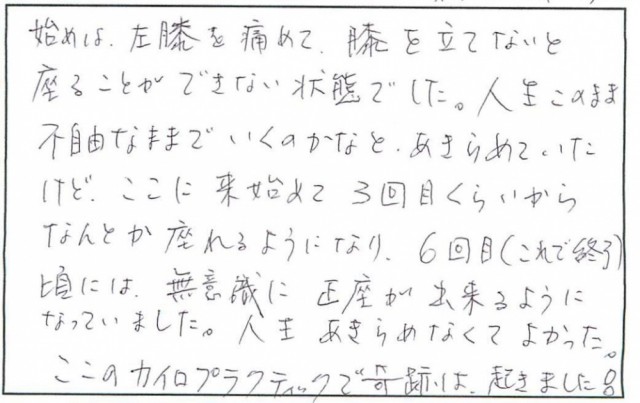 始めは、左膝を痛めて、膝を立てないと
座ることができない状態でした。人生このまま
不自由なままでいくのかなと、あきらめていた
けど、ここに来始めて3回目くらいから
なんとか座れるようになり、6回目(これで終了)
頃には、無意識に正座が出来るように
なっていました。人生あきらめなくてよかった。
ここのカイロプラクティックで奇跡は、起きました!!